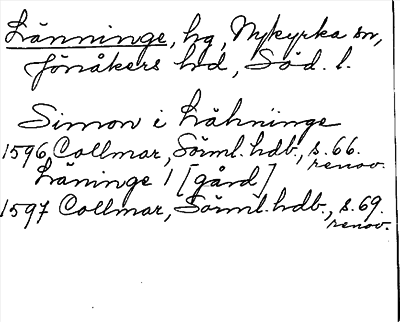 Länninge, hg, Nykyrka sn,
Jönåkers hd, Söd. l.
Simon i Lähninge
1596 Collmar, Sörml. hdb., s. 66.
renov.
Läninge 1 [gård]
1597 Collmar, Sörml. hdb., s. 69.
renov.